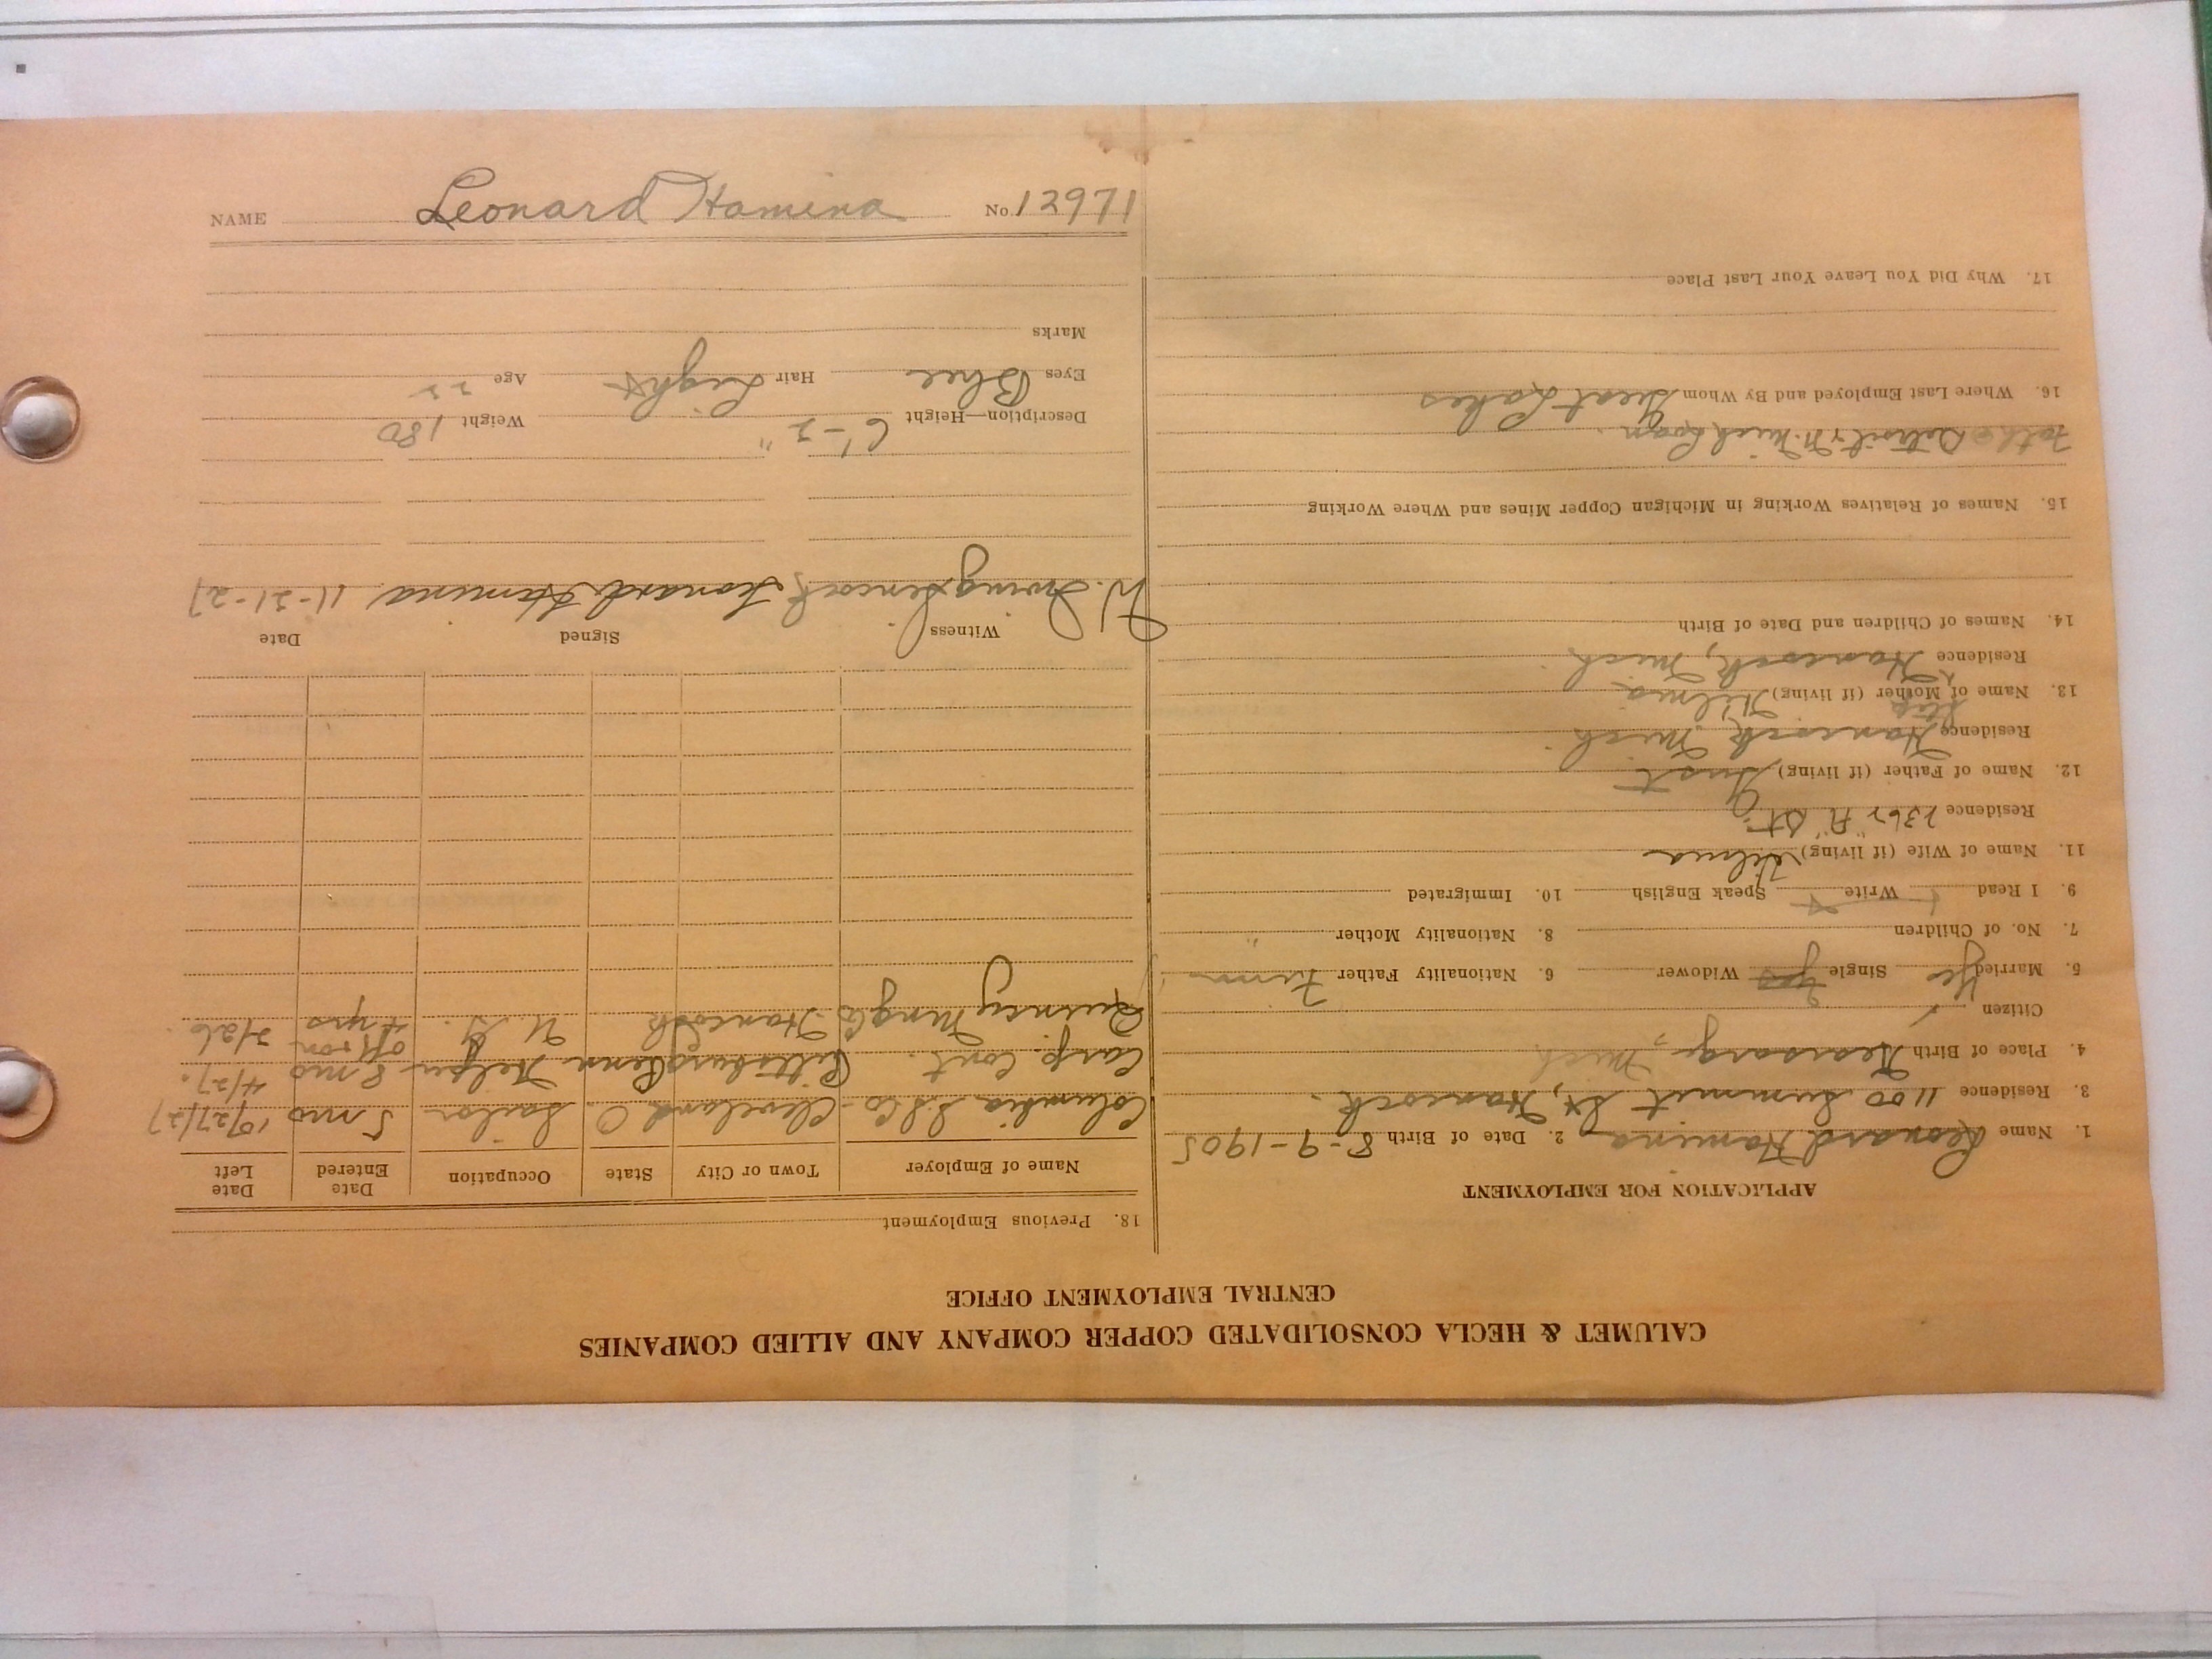 NAME Leonard Hamina No. 12971
CALUMET & HECLA CONSOLIDATED COPPER COMPANY AND ALLIED COMPANIES
CENTRAL EMPLOYMENT OFFICE
APPLICATION FOR EMPLOYMENT
1. Name Leonard Hamina 2. Date of Birth 8-9-1905
3. Residence 1100 Summit St, Hancock.
4. Place of Birth Kearsarge, Mich
Citizen ✓
5. Married Yes Single Yes Widower 6. Nationality Father Finn
7. No. of Children 8. Nationality Mother "
9. I Read Write Speak English 10. Immigrated
11. Name of Wife (if living) Hilma
Residence 2362 "A" St.
12. Name of Father (if living) Gust
Residence Hancock Mich
13. Name of Step Mother (if living) Hilma
Residence Hancock, Mich
14. Names of Children and Date of Birth
15. Names of Relatives Working in Michigan Copper Mines and Where Working
Father Detroit & N. Mich Loan.
16. Where Last Employed and By Whom Great Lakes
17. Why Did You Leave Your Last Place
18. Previous Employment
Name of Employer Town or City State Occupation Date Entered Date Left
Columbia S.S. Co Cleveland O. Sailor 5 mo 10/27/27
Carp. Cont. Pittsburg Penn Helper 8 mo 4/27.
Quincy Mng Co Hancock U.G. off & on 4 yrs 7/26.
Witness Signed Date
W. Irving Leonard Hamina 11-21-27
Description—Height 6'-2" Weight 180
Eyes Blue Hair Light Age 22
Marks